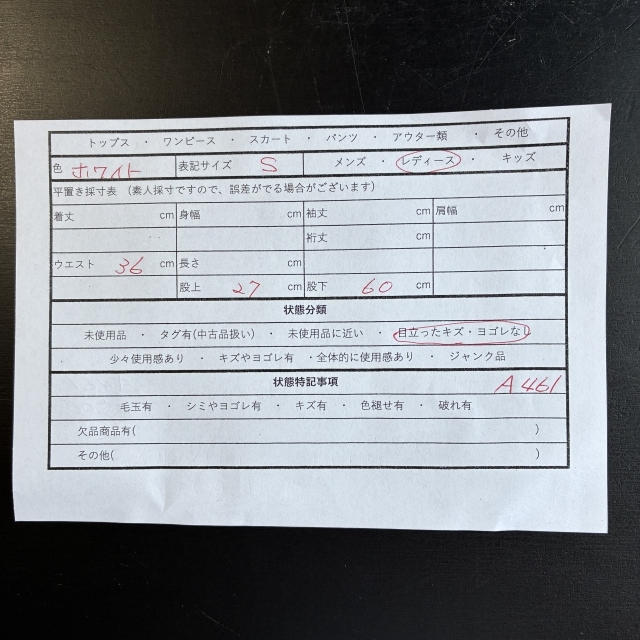 トップス ・ ワンピース ・ スカート ・ パンツ ・ アウター類 ・ その他
色 ホワイト 表記サイズ S メンズ ・ レディース ・ キッズ
平置き採寸表 （素人採寸ですので、誤差がでる場合がございます）
着丈 cm 身幅 cm 袖丈 cm 肩幅 cm
裄丈 cm
ウエスト 36 cm 長さ cm
股上 27 cm 股下 60 cm
状態分類
未使用品 ・ タグ有(中古品扱い) ・ 未使用品に近い ・ 目立ったキズ・ヨゴレなし
少々使用感あり ・ キズやヨゴレ有 ・全体的に使用感あり ・ ジャンク品
状態特記事項 A461
毛玉有 ・ シミやヨゴレ有 ・ キズ有 ・ 色褪せ有 ・ 破れ有
欠品商品有( )
その他( )